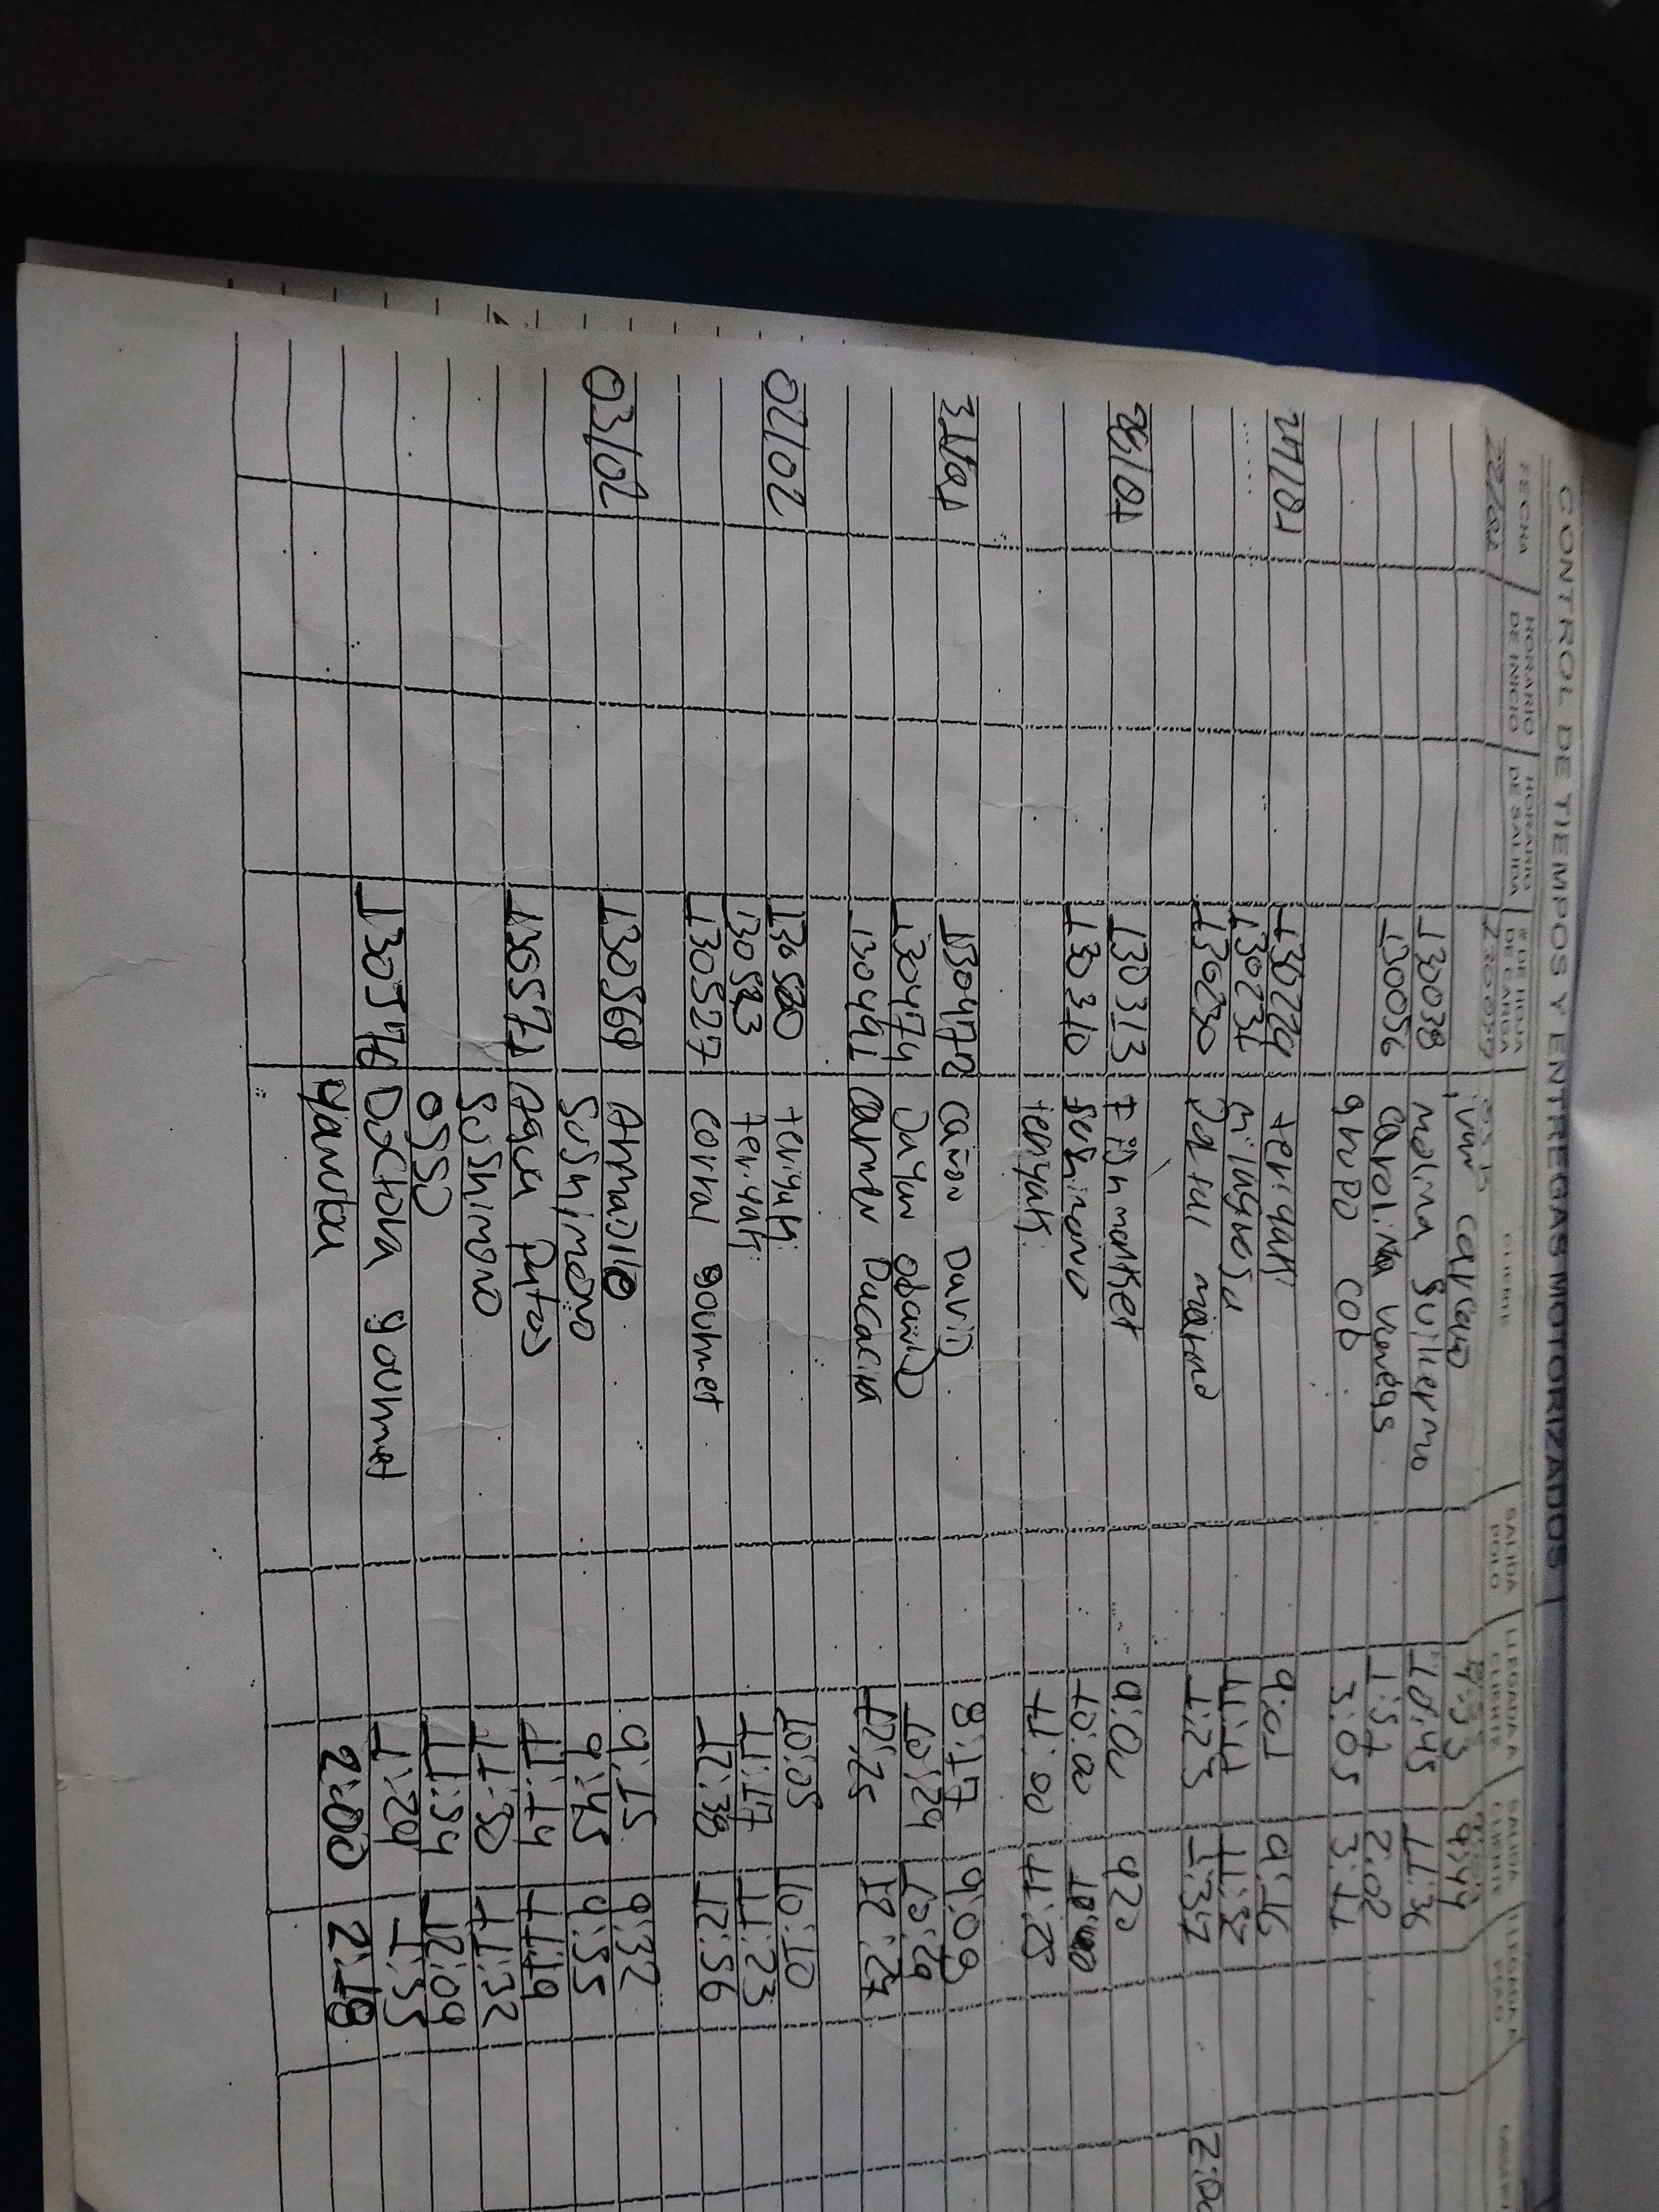 CONTROL DE TIEMPOS Y ENTREGAS MOTORIZADOS
FECHA HORARIO DE INICIO HORARIO DE SALIDA # DE HOJA DE CARGA CLIENTE SALIDA POLO LLEGADA A CLIENTE SALIDA CLIENTE LLEGADA A
9:33 9:44
130038 molina Guillermo 10:45 11:36
130056 Carolina venegas 1:51 2:02
grupo COb 3:05 3:11
27/01 130229 teriyaki 9:01 9:16
130231 milagrosa 11:11
130230 1:23 1:37 2:00
28/01 130313 market 9:00 920
130310 Sushimono 10:00
teriyaki 11:00 11:25
31/01 130472 Cañon David 8:17 9:09
130474 Dayan David 10:24 10:29
130491 Carmen 12:25 12:27
02/02 130520 teriyaki 10:05 10:10
130523 teriyaki 11:17 11:23
130527 Corral gourmet 12:38 12:56
03/02 130569 Amadillo 9:15 9:32
Sushimono 9:45 9:55
130571 Agua 11:14 11:19
Sushimono 11:30 11:32
OSSO 11:34 12:09
130570 gourmet 1:29 1:55
Yanuba 2:00 2:18